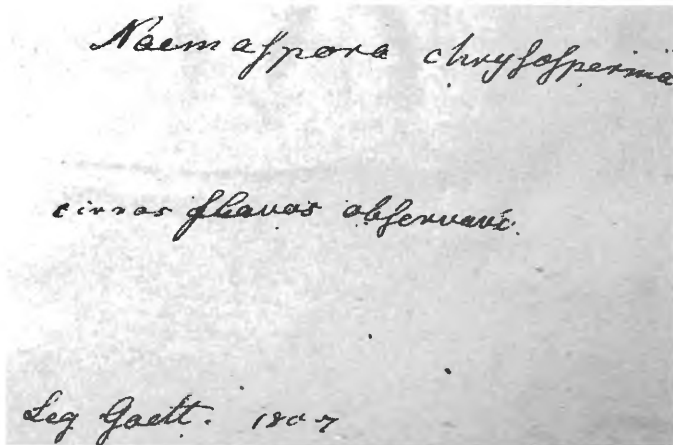 Naemaſpora chryſoſperma
cirros flavos obſervavi.
Leg Goett. 1807